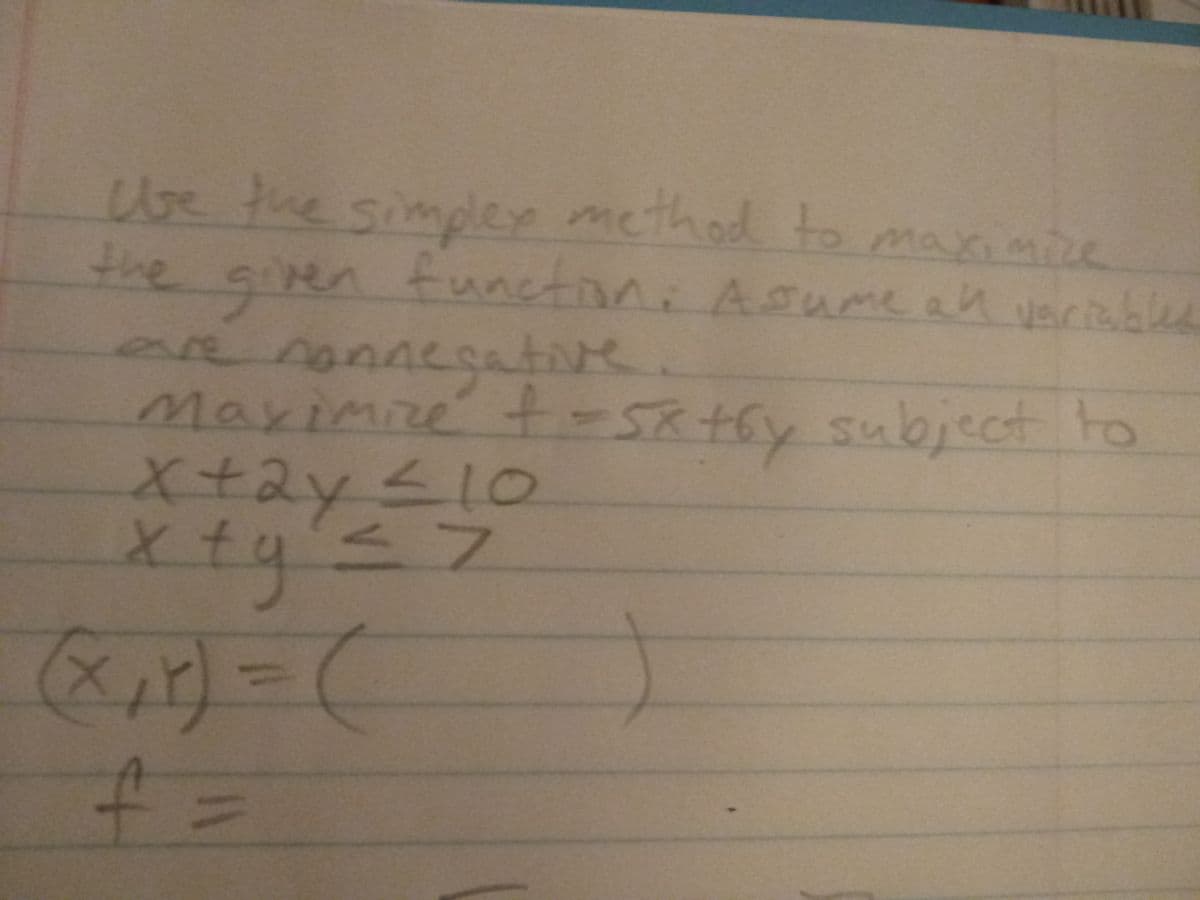 Use the simplex method to maximize
the given function. Assume all variables
are nonnegative.
Maximize f = 5x +6y subject to
x+2y ≤ 10
x +y ≤ 7
(x,y) = (        )
f =